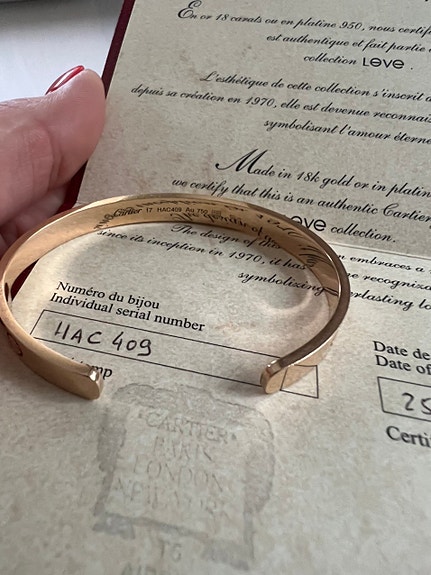 En or 18 carats ou en platine 950, nous certif
est authentique et fait partie
collection LOVE.
L'esthétique de cette collection s'inscrit d
depuis sa création en 1970, elle est devenue reconnai
symbolisant l'amour éterne
Made in 18k gold or in platin
we certify that this is an authentic Cartier
OVE collection.
The design of
embraces a
since its inception in 1970, it has
recognisa
symbolizing
everlasting lo
Cartier 17 HAC409 Au 750
Numéro du bijou
Individual serial number
HAC409
Date de
Date of
25
mp
Certi
CARTIER
PARIS
LONDON
NEW YORK